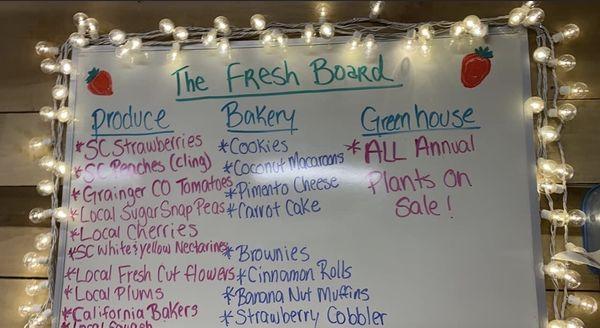 The Fresh Board
Produce
*SC Strawberries
*SC Peaches (cling)
*Grainger CO Tomatoes
*Local Sugar Snap Peas
*Local Cherries
*SC White & Yellow Nectarines
*Local Fresh Cut flowers
*Local Plums
*California Bakers
*Local Squash
Bakery
*Cookies
*Coconut Macaroons
*Pimento Cheese
*Carrot Cake
*Brownies
*Cinnamon Rolls
*Banana Nut Muffins
*Strawberry Cobbler
Greenhouse
*ALL Annual
Plants On
Sale!